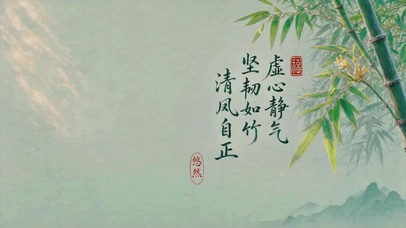 虚心静气
坚韧如竹
清风自正
悠然